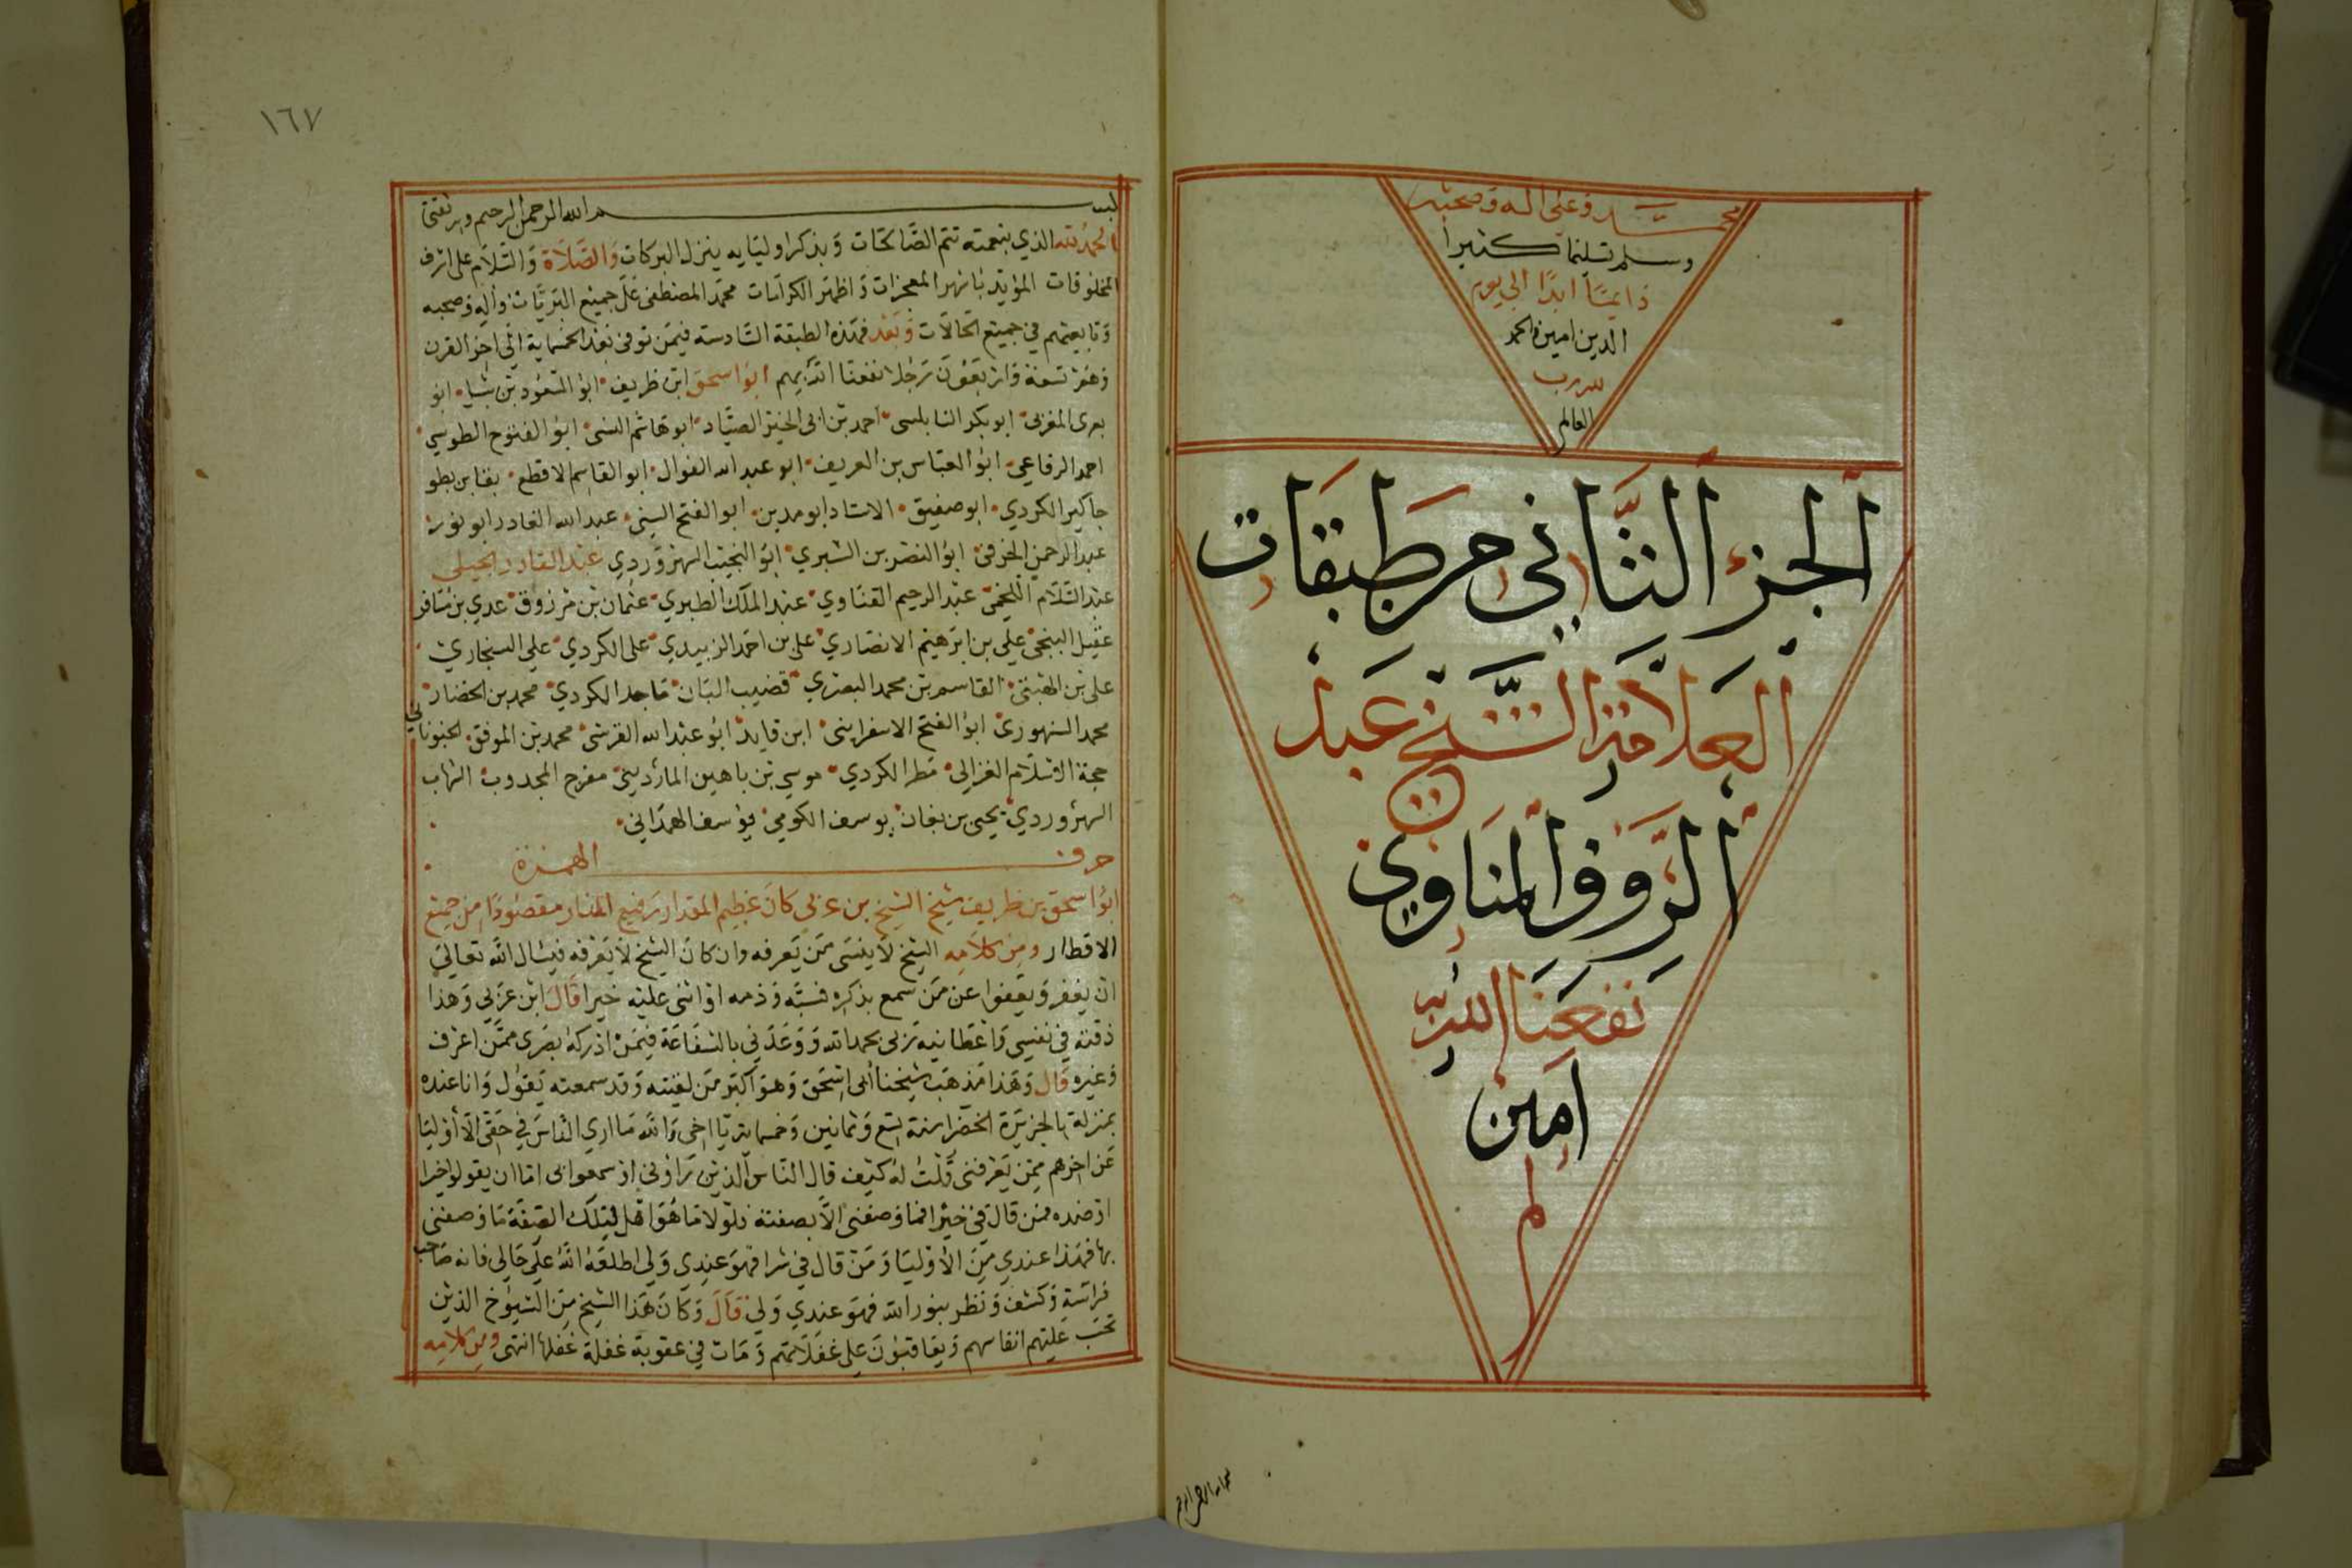 محمد وعلى اله وصحبه
وسلم تسليما كثيرا
دائما ابدا الى يوم
الدين امين والحمد
لله رب
العالم
الجزء الثاني من طبقات
العلامة الشيخ عبد
الرووف المناوي
نفعنا الله به
امين
م
بسم الله الرحمن الرحيم
١٦٧
بسم الله الرحمن الرحيم وبه ثقتي
الحمد لله الذي بنعمته تتم الصالحات وبذكر اوليايه ينزل البركات والصلاة والسلام على اشرف
المخلوقات المؤيد باشهر المعجزات واظهر الكرامات محمد المصطفى على جميع البريات واله وصحبه
وتابعيهم في جميع الحالات وبعد فهذه الطبقة السادسة فيمن توفى بعد الخمسماية الى اخر القرن
وهم تسعة واربعون رجلا نفعنا الله بهم ابو اسحق ابن ظريف ابو السعود بن شبل ابو
يعزى المغربي ابو بكر النابلسى احمد بن ابي الخير الصياد ابو هاشم السنى ابو الفتوح الطوسي
احمد الرفاعي ابو العباس بن العريف ابو عبد الله الغوال ابو القاسم الاقطع بقا بن بطو
جاكير الكردي ابو صفيق الاستاد ابو مدين ابو الفتح السني عبد الله القادر ابو نور
عبد الرحمن الخرقى ابو النضر بن الشبري ابو النجيب السهروردي عبد القادر الجيلى
عبد السلام اللخمى عبد الرحيم القناوي عبد الملك الطبري عثمان بن مرزوق عدي بن مسافر
عقيل المنبجى علي بن ابرهيم الانصاري على بن احمد الزبيدي على الكردي علي السنجاري
على بن الهيتى القاسم بن محمد البصري قضيب البان ماجد الكردي محمد بن الخضار
محمد السنهورى ابو الفتح الاسفراينى ابن قايد ابو عبد الله القرشى محمد بن الموفق الخبوشاني
حجة الاسلام الغزالى مطر الكردي موسي بن باهين المارديني مفرج المجدوب الشهاب
السهروردي يحيى بن بغان يوسف الكومي يوسف الهمداني
حرف الهمزة
ابو اسحق بن ظريف شيخ الشيخ بن عربى كان عظيم المقدار رفيع المنار مقصودا من جميع
الاقطار ومن كلامه الشيخ لا ينسى من يعرفه وان كان الشيخ لا يعرفه فيسال الله تعالى
ان يغفر ويعفوا عن من سمع بذكره فسبه وذمه او اثنى عليه خيرا قال ابن عربي وهذا
ذقته في نفسي واعطانيه ربى بحمد الله ووعدني بالشفاعة فيمن ادركه بصرى ممن اعرف
وغيره قال وهذا مذهب شيخنا أبى اسحق وهو اكبر من لقيته وقد سمعته يقول وانا عنده
بمنزله بالجزيرة الخضرا سنة تسع وثمانين وخمسماية يا اخى والله ما ارى الناس في حقى الا أوليا
عن اخرهم ممن يعرفنى قلت له كيف قال الناس الذين راونى او سمعوا بى اما ان يقولوا خيرا
او ضده فمن قال في خيرا فما وصفنى الا بصفته فلولا ما هو اهل لتلك الصفة ما وصفنى
بها فهذا عندي من الأوليا ومن قال في شرا فهو عندي ولي اطلعه الله على حالى فانه صاحب
فراسة وكشف ونظر بنور الله فهو عندي ولى قال وكان هذا الشيخ من الشيوخ الذين
تحسب عليهم انفاسهم ويعاقبون على غفلاتهم ومات في عقوبة غفلة غفلها انتهى ومن كلامه